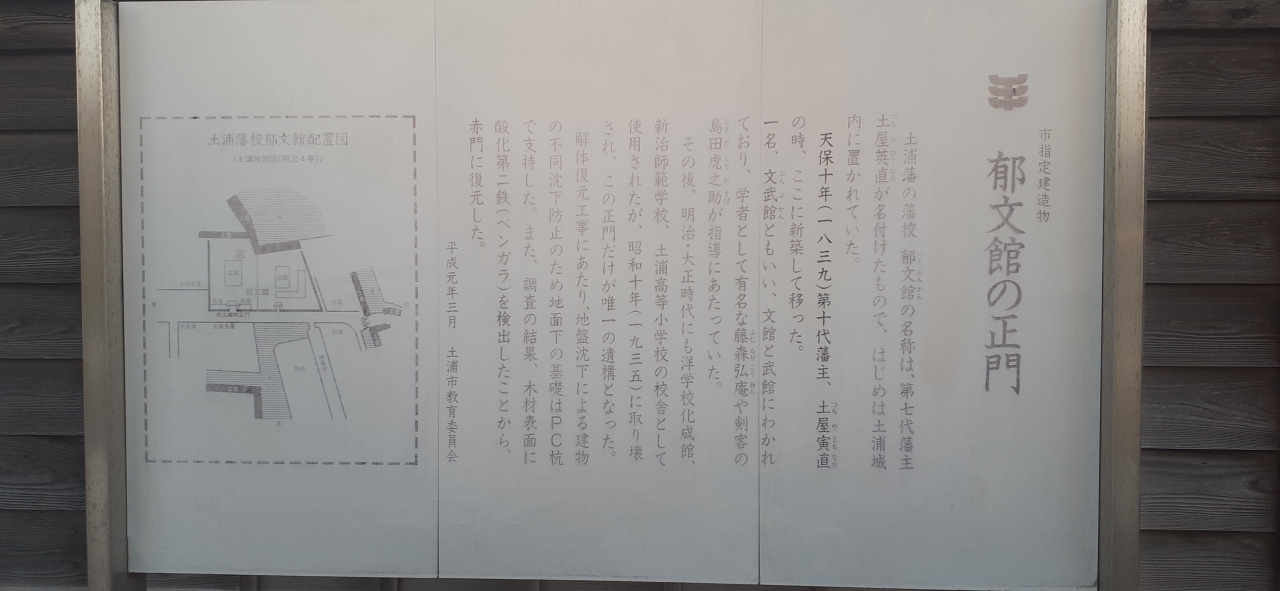 市指定建造物
郁文館の正門
土浦藩の藩校 郁文館の名称は、第七代藩主
土屋英直が名付けたもので、はじめは土浦城
内に置かれていた。
天保十年(一八三九)第十代藩主、土屋寅直
の時、ここに新築して移った。
一名、文武館ともいい、文館と武館にわかれ
ており、学者として有名な藤森弘庵や剣客の
島田虎之助が指導にあたっていた。
その後、明治・大正時代にも洋学校化成館、
新治師範学校、土浦高等小学校の校舎として
使用されたが、昭和十年(一九三五)に取り壊
され、この正門だけが唯一の遺構となった。
解体復元工事にあたり、地盤沈下による建物
の不同沈下防止のため地面下の基礎はPC杭
で支持した。また、調査の結果、木材表面に
酸化第二鉄(ベンガラ)を検出したことから、
赤門に復元した。
平成元年三月 土浦市教育委員会
土浦藩校郁文館配置図